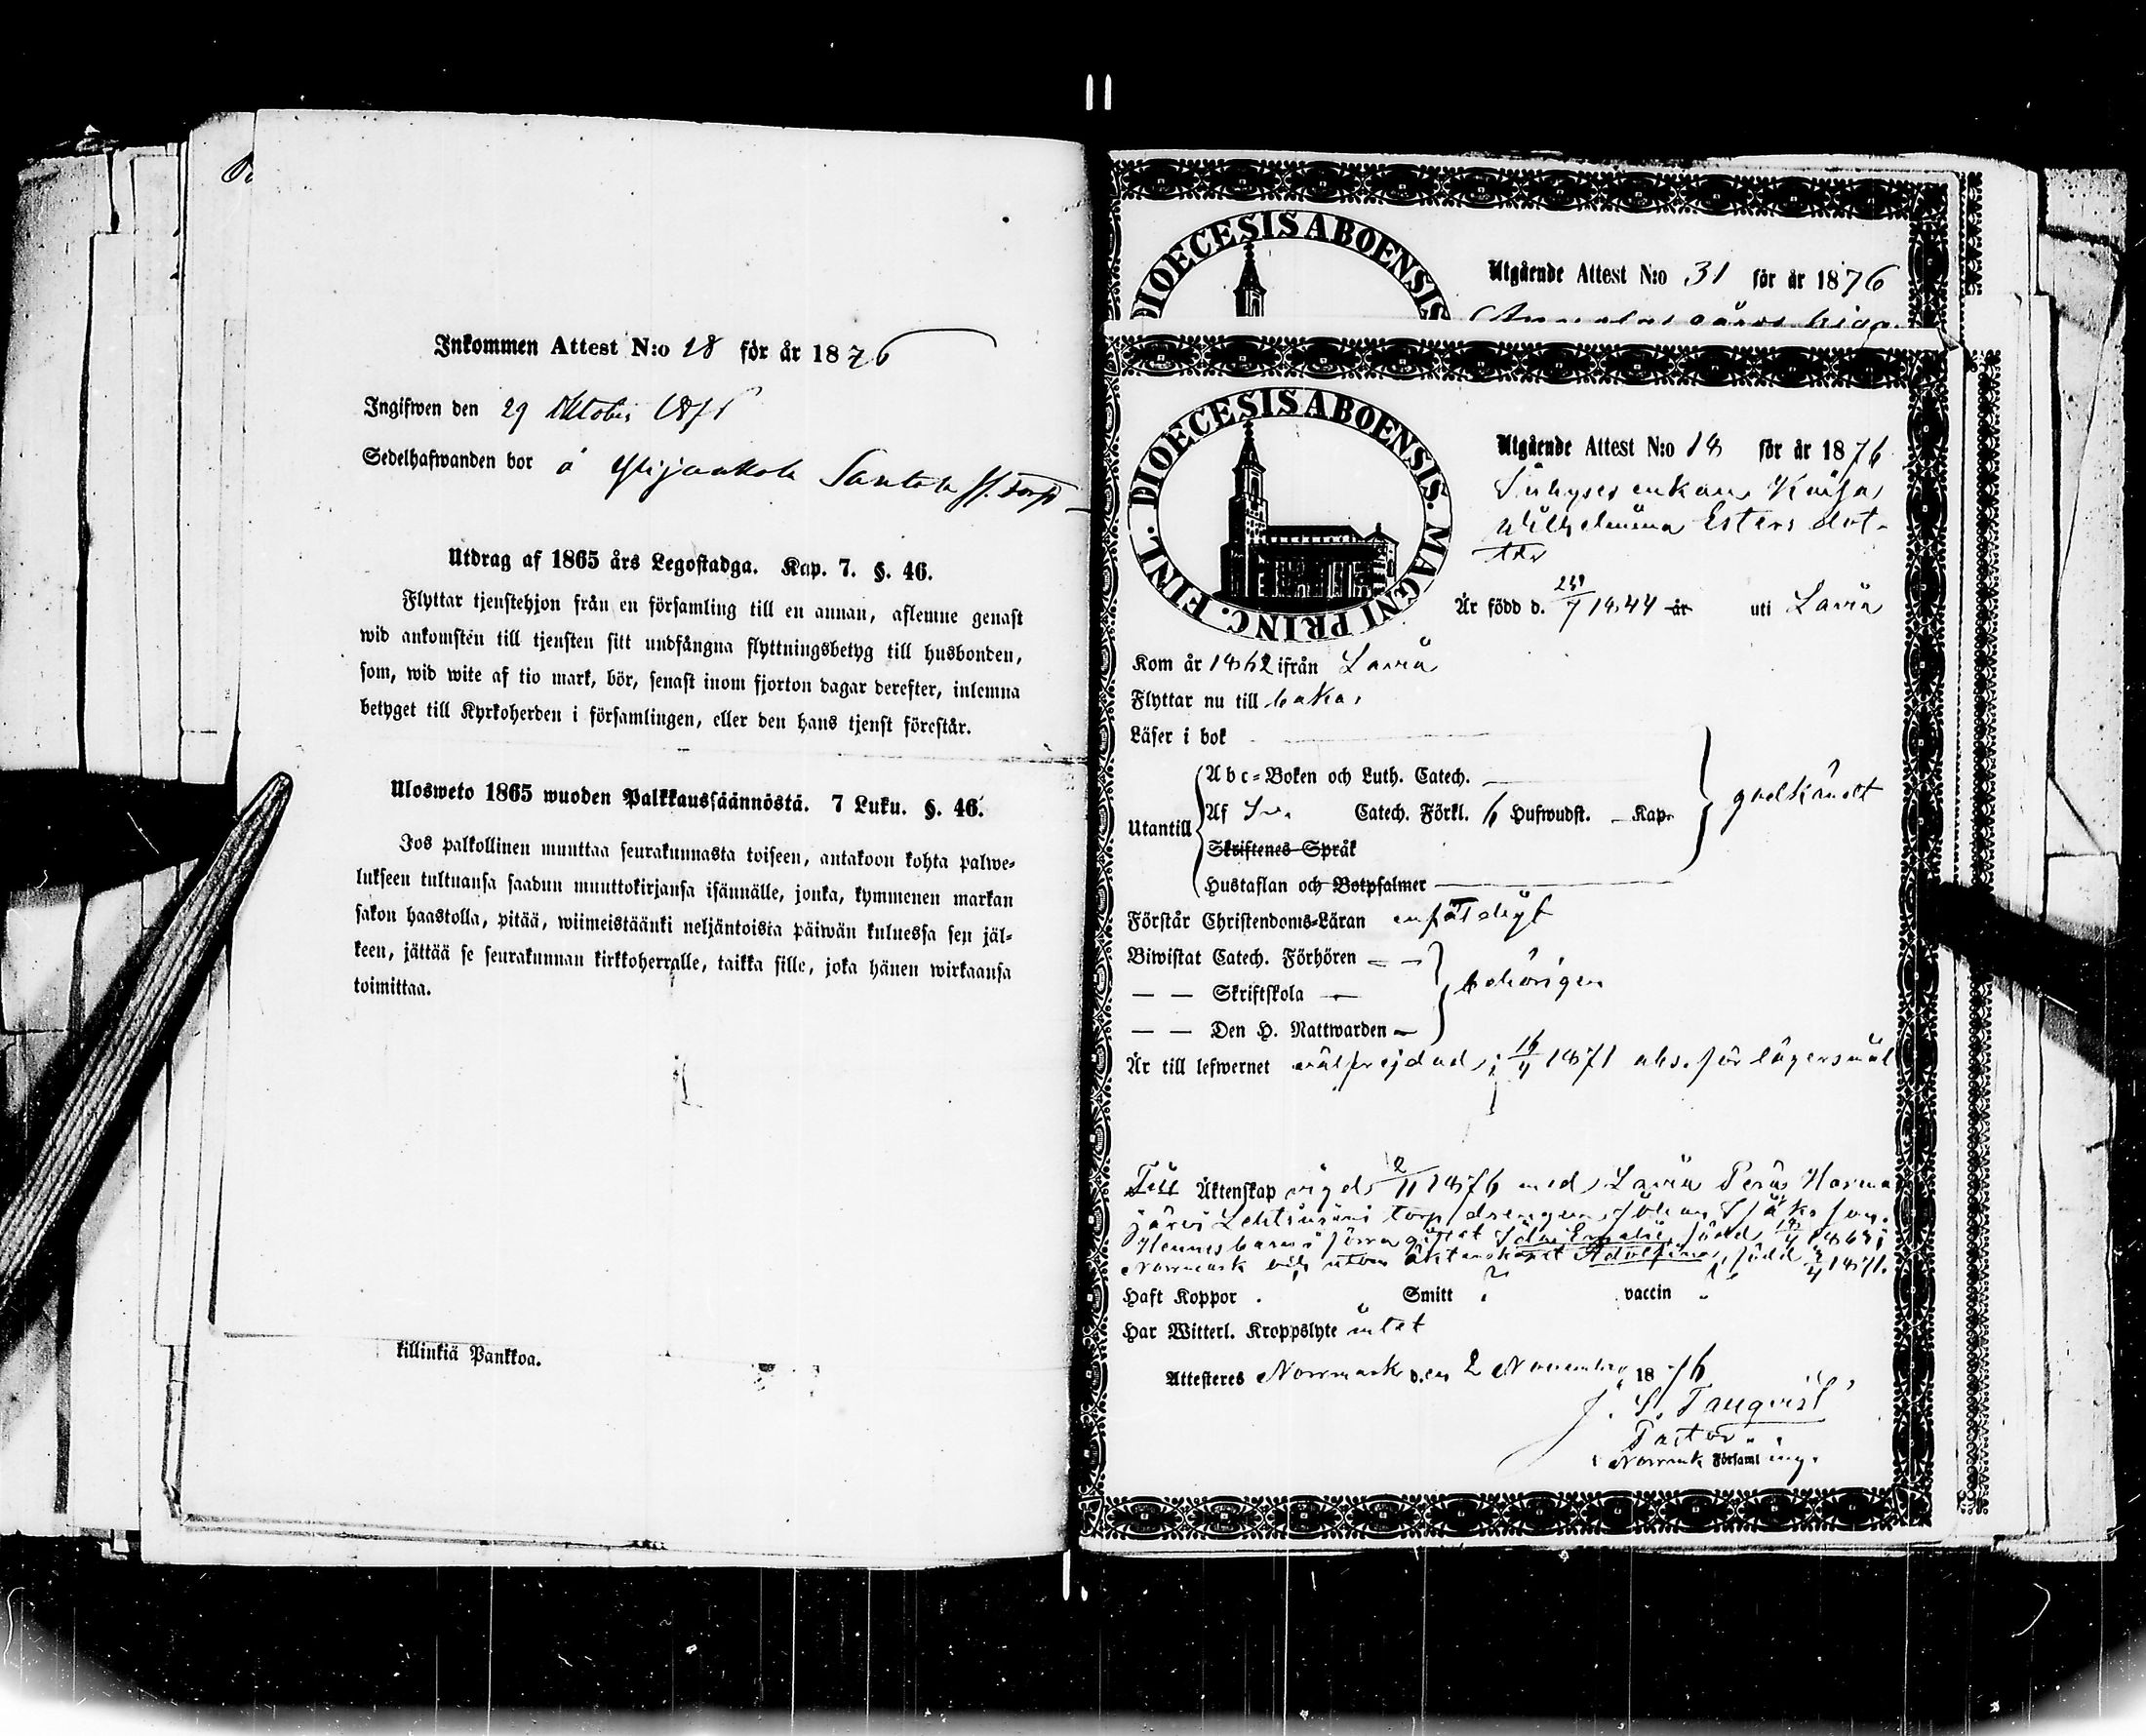 Inkommen Attest N:o 28 för år 1876
Ingifwen den 29 Oktober 1876
Sedelhafwanden bor å Ylijaakola Santala torp
Utdrag af 1865 års Legostadga. Kap. 7. §. 46.
Flyttar tjenstehjon från en församling till en annan, aflemne genast
wid ankomsten till tjensten sitt undfångna flyttningsbetyg till husbonden,
som, wid wite af tio mark, bör, senast inom fjorton dagar derefter, inlemna
betyget till Kyrkoherden i församlingen, eller den hans tjenst förestår.
Ulosweto 1865 wuoden Palkkaussäännöstä. 7 Luku. §. 46.
Jos palkollinen muuttaa seurakunnasta toiseen, antakoon kohta palwe-
lukseen tultuansa saadun muuttokirjansa isännälle, jonka, kymmenen markan
sakon haastolla, pitää, wiimeistäänki neljäntoista päiwän kuluessa sen jäl-
keen, jättää se seurakunnan kirkkoherralle, taikka sille, joka hänen wirkaansa
toimittaa.
killinkiä Pankkoa.
DIOECESIS ABOENSIS
Utgående Attest N:o 31 för år 1876
DIOECESIS ABOENSIS. MAGNI PRINC. FINL.
Utgående Attest N:o 18 för år 1876
enkan Kaisa
Wilhelmina Esters dot-
ter
Är född d. 28/7 1844 år uti Lavia
Kom år 1862 ifrån Lavia
Flyttar nu till baka
Läser i bok
Abc-Boken och Luth. Catech.
Utantill Af Sv. Catech. Förkl. 6 Hufwudst. Kap. godkändt
Skriftenes Språk
Hustaflan och Botpsalmer
Förstår Christendoms-Läran enfaldigt
Biwistat Catech. Förhören
— — Skriftskola behörigen
— — Den H. Nattwarden
Är till lefwernet välfrejdad, 16/4 1871 abs. för lägersmål
Till Äktenskap vigd 2/11 1876 med Lavia Perä Harma
järvi torp drengen Johan
Hennes barn i förra giftet Ida Emalie, född
Norrmark och utom äktenskapet Adolfina, född 4/4 1871.
Haft Koppor . Smitt ? vaccin
Har Witterl. Kroppslyte intet
Attesteres Norrmark den 2 November 1876
J. S. Tanqvist
Pastor
i Norrmark Församling.